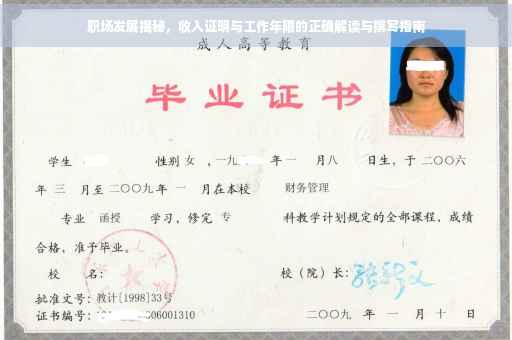 职场发展揭秘，收入证明与工作年限的正确解读与撰写指南
成人高等教育
毕业证书
学生 性别 女 ，一九 年 一 月八 日生，于 二〇〇六
年 三 月至 二〇〇九 年 一 月在本校 财务管理
专业 函授 学习，修完 专 科教学计划规定的全部课程，成绩
合格，准予毕业。
校 名： 校（院）长：
批准文号：教计[1998]33号
证书编号： 06001310 二〇〇九 年 一 月 十 日